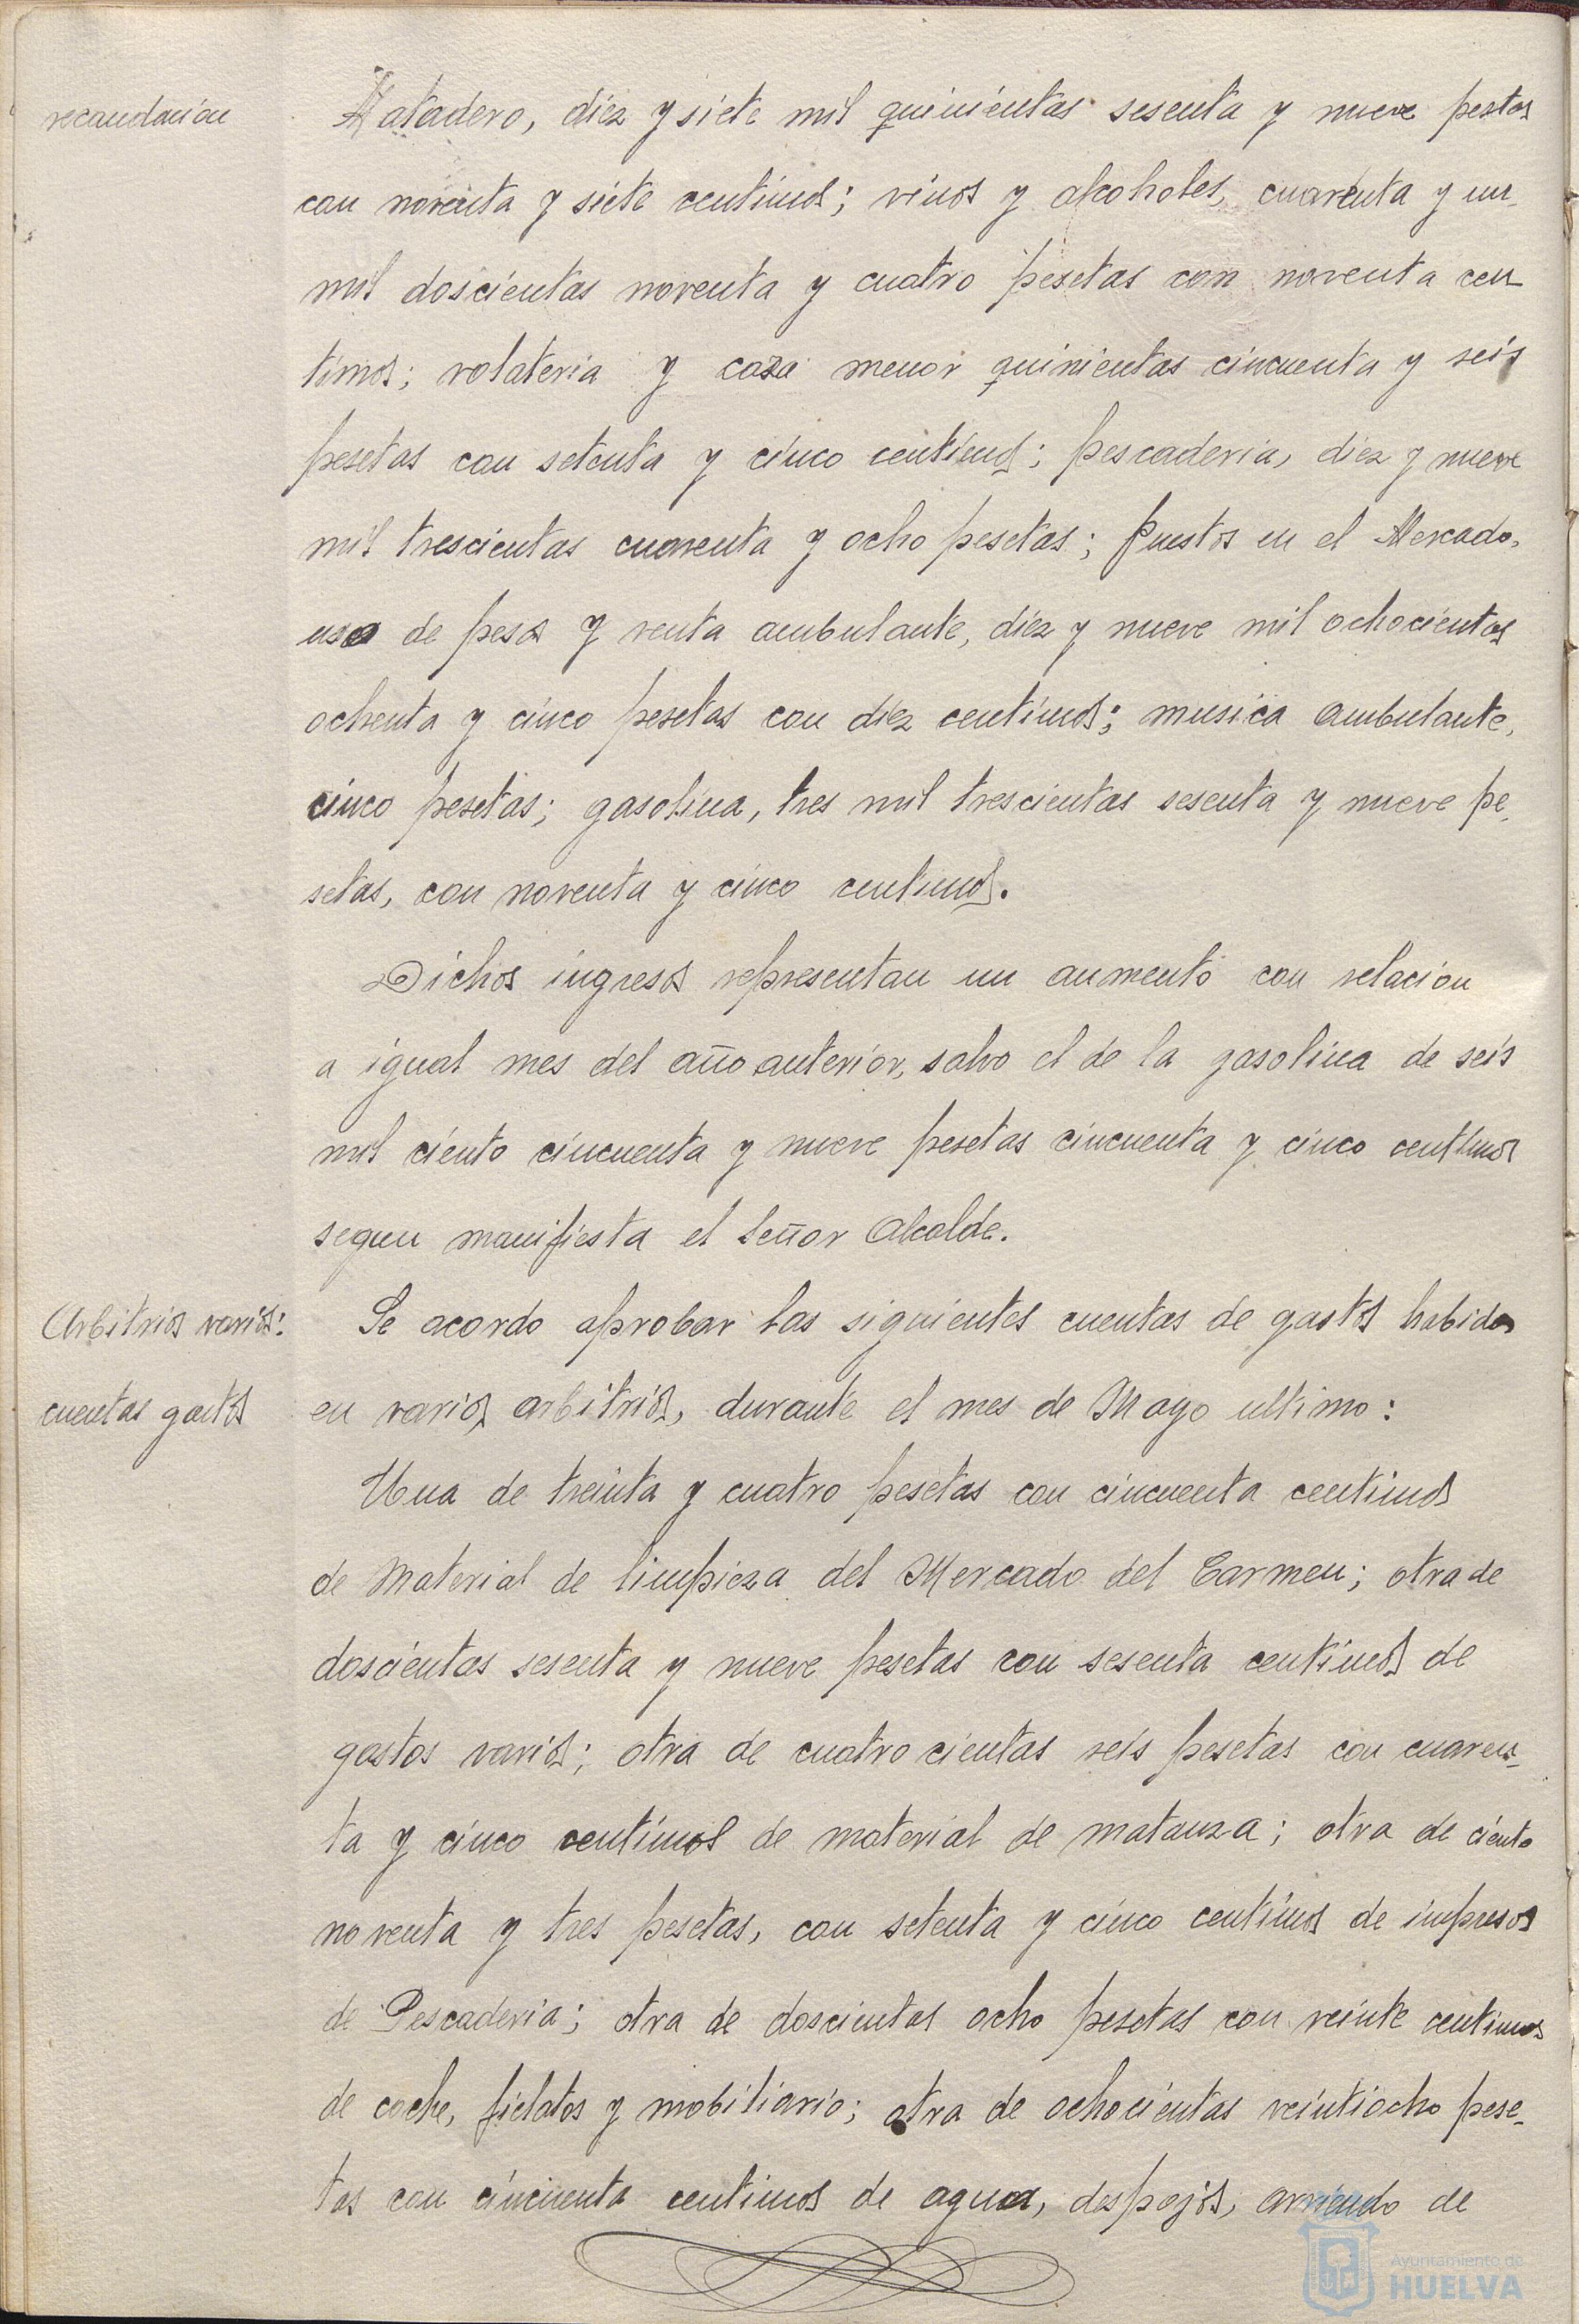 recaudacion
Matadero, diez y siete mil quinientas sesenta y nueve pestas
con noventa y siete centimos; vinos y alcoholes, cuarenta y un
mil doscientas noventa y cuatro pesetas con noventa cen
timos; volateria y caza menor quinientas cincuenta y seis
pesetas con setenta y cinco centimos; pescaderia, diez y nueve
mil trescientas cuarenta y ocho pesetas; Puestos en el Mercado,
uso de pesos y venta ambulante, diez y nueve mil ochocientas
ochenta y cinco pesetas con diez centimos; musica ambulante,
cinco pesetas; gasolina, tres mil trescientas sesenta y nueve pe-
setas, con noventa y cinco centimos.
Dichos ingresos representan un aumento con relacion
a igual mes del año anterior, salvo el de la gasolina de seis
mil ciento cincuenta y nueve pesetas cincuenta y cinco centimos
segun manifiesta el Señor Alcalde.
Arbitrios varios:
cuentas gastos
Se acordo aprobar las siguientes cuentas de gastos habidos
en varios arbitrios, durante el mes de Mayo ultimo:
Una de treinta y cuatro pesetas con cincuenta centimos
de Material de limpieza del Mercado del Carmen; otra de
doscientas sesenta y nueve pesetas con sesenta centimos de
gastos varios; otra de cuatrocientas seis pesetas con cuaren-
ta y cinco centimos de material de matanza; otra de ciento
noventa y tres pesetas, con setenta y cinco centimos de impresos
de Pescaderia; otra de doscientas ocho pesetas con veinte centimos
de coche, fielatos y mobiliario; otra de ochocientas veintiocho pese-
tas con cincuenta centimos de agua, despojos, arriendo de
Ayuntamiento de
HUELVA